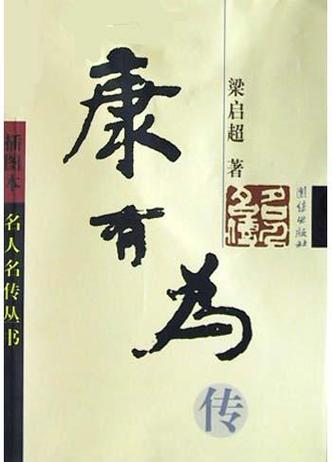 康有为
传
梁启超 著
名人
名传
团结出版社
插图本
名人名传丛书